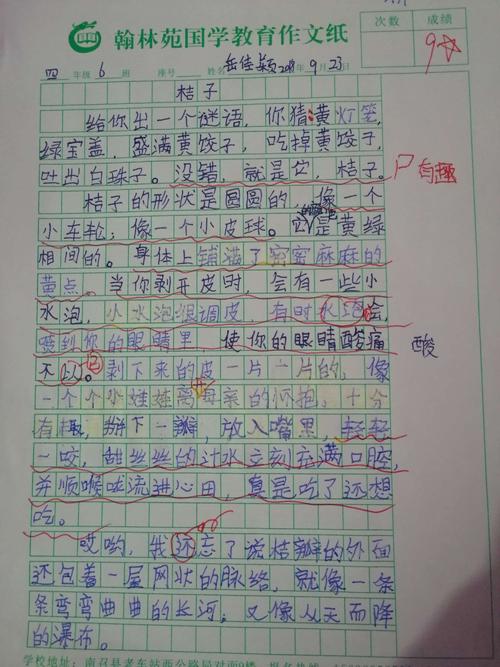 翰林苑国学教育作文纸
次数 成绩
9☆
四年级 6班 座号 姓名 岳佳颖 2018年9月23日
桔子
给你出一个谜语,你猜:黄灯笼,
绿宝盖,盛满黄饺子,吃掉黄饺子,
吐出白珠子。没错,就是它,桔子。
有趣
桔子的形状是圆圆的,像一个
小车轮;像一个小皮球。它是黄绿
相间的。身体上铺满了密密麻麻的
黄点。当你剥开皮时,会有一些小
水泡,小水泡很调皮,有时水泡会
喷到你的眼睛里,使你的眼睛酸痛
酸
不以。剥下来的皮一片一片的,像
一个个小娃娃离母亲的怀抱,十分
有趣,掰下一瓣,放入嘴里,轻轻
一咬,甜丝丝的汁水立刻充满口腔,
并顺喉咙流进心田,真是吃了还想
吃。
哎哟,我还忘了说桔瓣的外面
还包着一层网状的脉络,就像一条
条弯弯曲曲的长河;又像从天而降
的瀑布。
学校地址:南召县老车站西公路局对面9楼